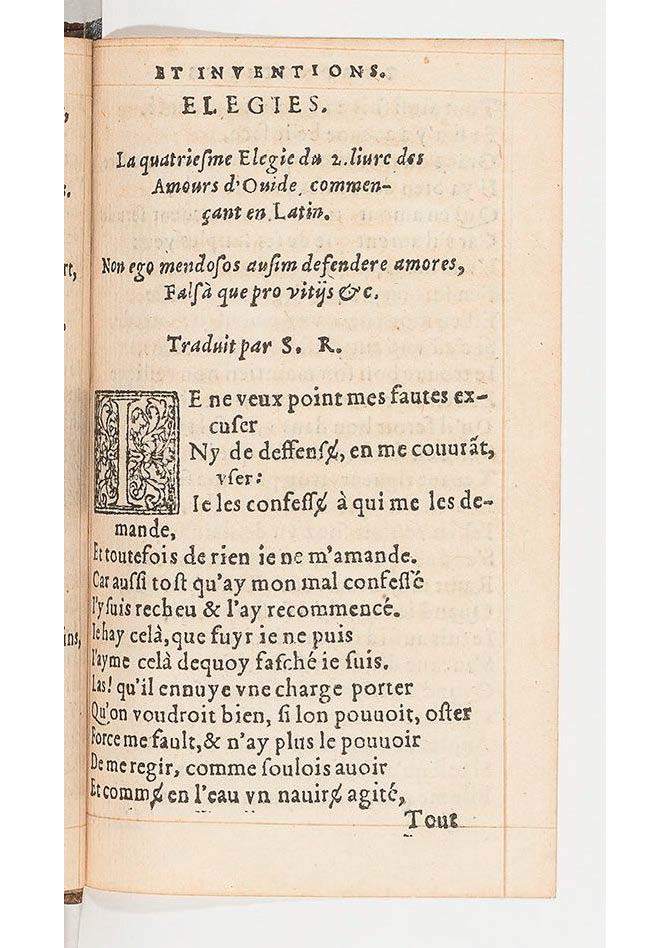 ET INVENTIONS.
ELEGIES.
La quatrieſme Elegie du 2. liure des
Amours d'Ouide, commen-
çant en Latin.
Non ego mendoſos auſim defendere amores,
Falſà que pro vitijs &c.
Traduit par S. R.
IE ne veux point mes fautes ex-
cuſer
Ny de deffenſɇ, en me couurãt,
vſer:
Ie les confeſſɇ à qui me les de-
mande,
Et toutefois de rien ie ne m'amande.
Car auſſi toſt qu'ay mon mal confeſſé
I'y ſuis recheu & l'ay recommencé.
Ie hay celà, que fuyr ie ne puis
I'ayme celà dequoy faſché ie ſuis.
Las! qu'il ennuye vne charge porter
Qu'on voudroit bien, ſi lon pouuoit, oſter
Force me fault, & n'ay plus le pouuoir
De me regir, comme ſoulois auoir
Et commɇ en l'eau vn nauirɇ agité,
Tout
rt,
ins,